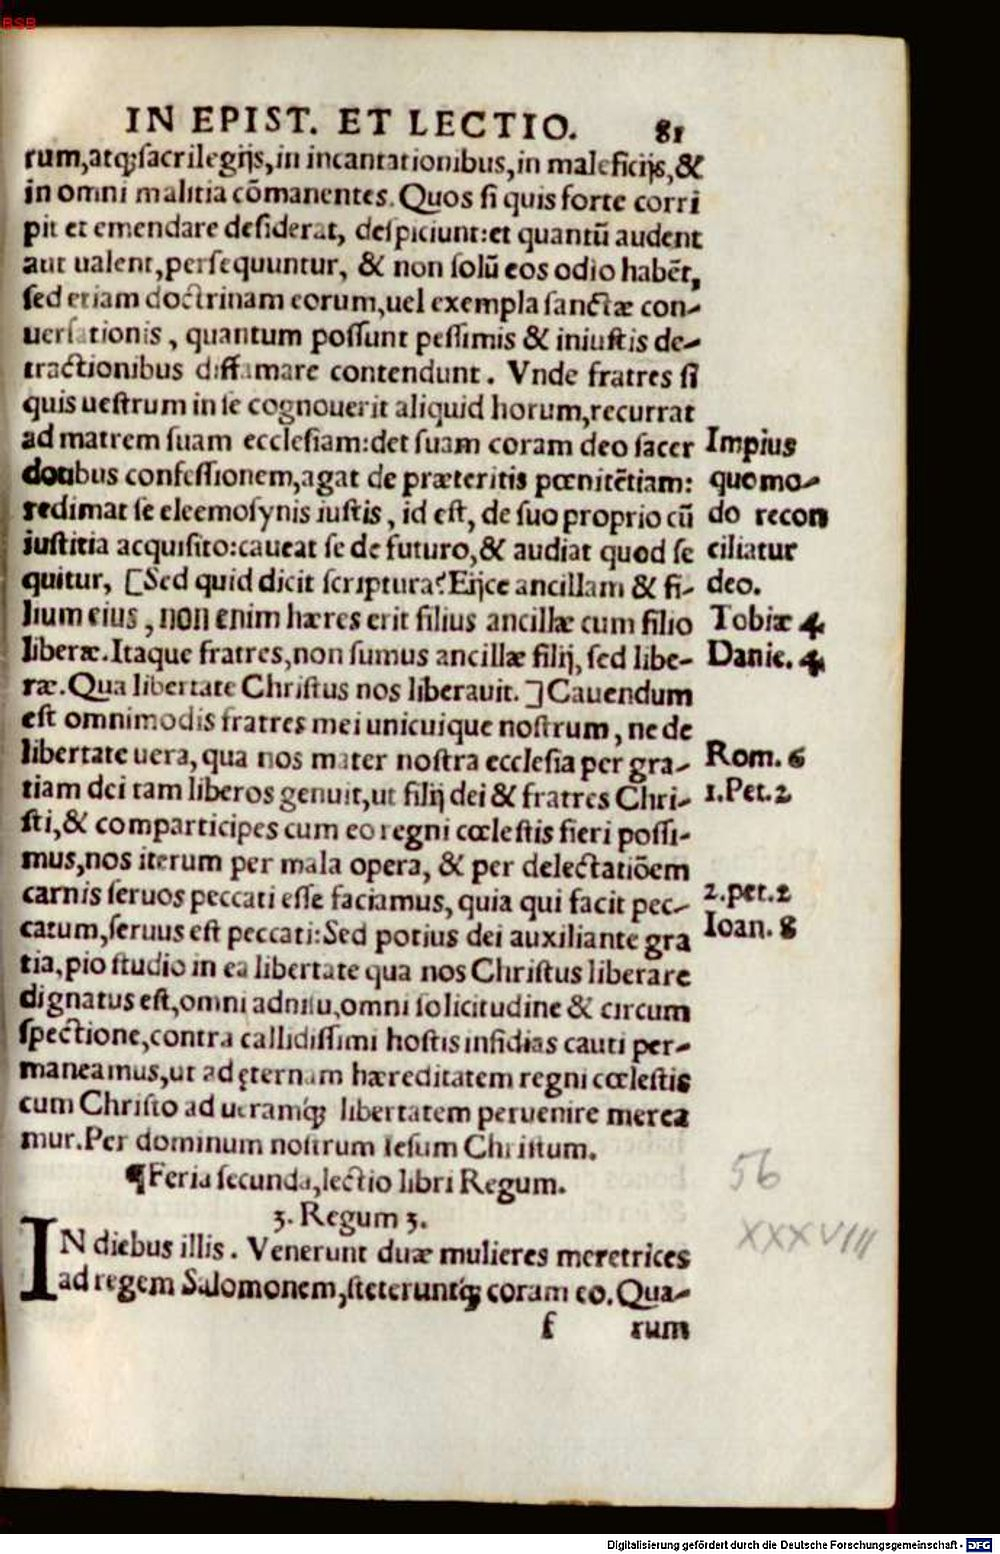 BSB
IN EPIST. ET LECTIO. 81
rum,atq;sacrilegijs,in incantationibus,in maleficijs,&
in omni malitia cōmanentes. Quos si quis forte corri
pit et emendare desiderat, despiciunt:et quantū audent
aut ualent,persequuntur, & non solū eos odio habēt,
sed etiam doctrinam eorum,uel exempla sanctæ con-
uersationis , quantum possunt pessimis & iniustis de-
tractionibus diffamare contendunt. Vnde fratres si
quis uestrum in se cognouerit aliquid horum,recurrat
ad matrem suam ecclesiam:det suam coram deo sacer
dotibus confessionem,agat de præteritis pœnitētiam:
redimat se eleemosynis iustis , id est, de suo proprio cū
iustitia acquisito:caueat se de futuro,& audiat quod se
quitur, [Sed quid dicit scriptura? Eijce ancillam & fi-
lium eius , non enim hæres erit filius ancillæ cum filio
liberæ.Itaque fratres,non sumus ancillæ filij, sed libe-
ræ.Qua libertate Christus nos liberauit. ]Cauendum
est omnimodis fratres mei unicuique nostrum, ne de
libertate uera, qua nos mater nostra ecclesia per gra-
tiam dei tam liberos genuit,ut filij dei & fratres Chri-
sti,& comparticipes cum eo regni cœlestis fieri possi-
mus,nos iterum per mala opera, & per delectatiōem
carnis seruos peccati esse faciamus, quia qui facit pec-
catum,seruus est peccati:Sed potius dei auxiliante gra
tia,pio studio in ea libertate qua nos Christus liberare
dignatus est,omni adnisu,omni solicitudine & circum
spectione,contra callidissimi hostis insidias cauti per-
maneamus,ut ad ęternam hæreditatem regni cœlestis
cum Christo ad ueramq; libertatem peruenire merea
mur.Per dominum nostrum Iesum Christum.
¶Feria secunda,lectio libri Regum.
3. Regum 3.
IN diebus illis. Venerunt duæ mulieres meretrices
ad regem Salomonem,steteruntq; coram eo.Qua-
f rum
Impius
quomo-
do recon
ciliatur
deo.
Tobiæ 4
Danie. 4
Rom. 6
1.Pet.2
2.pet.2
Ioan. 8
56
XXXVIII
Digitalisierung gefördert durch die Deutsche Forschungsgemeinschaft - DFG